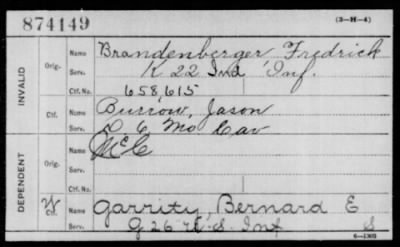 874149 (3-H-4)
INVALID Orig. Name Brandenberger, Fredrick
Serv. K 22 Ind Inf.
Ctf. No. 658,615
Ctf. Name Burrow, Jason
Serv. D 6 Mo Cav
DEPENDENT Orig. Name McC
Serv.
Ctf. No.
W Ctf. Name Garrity, Bernard E
Serv. G 26 U.S. Inf S
6-1903